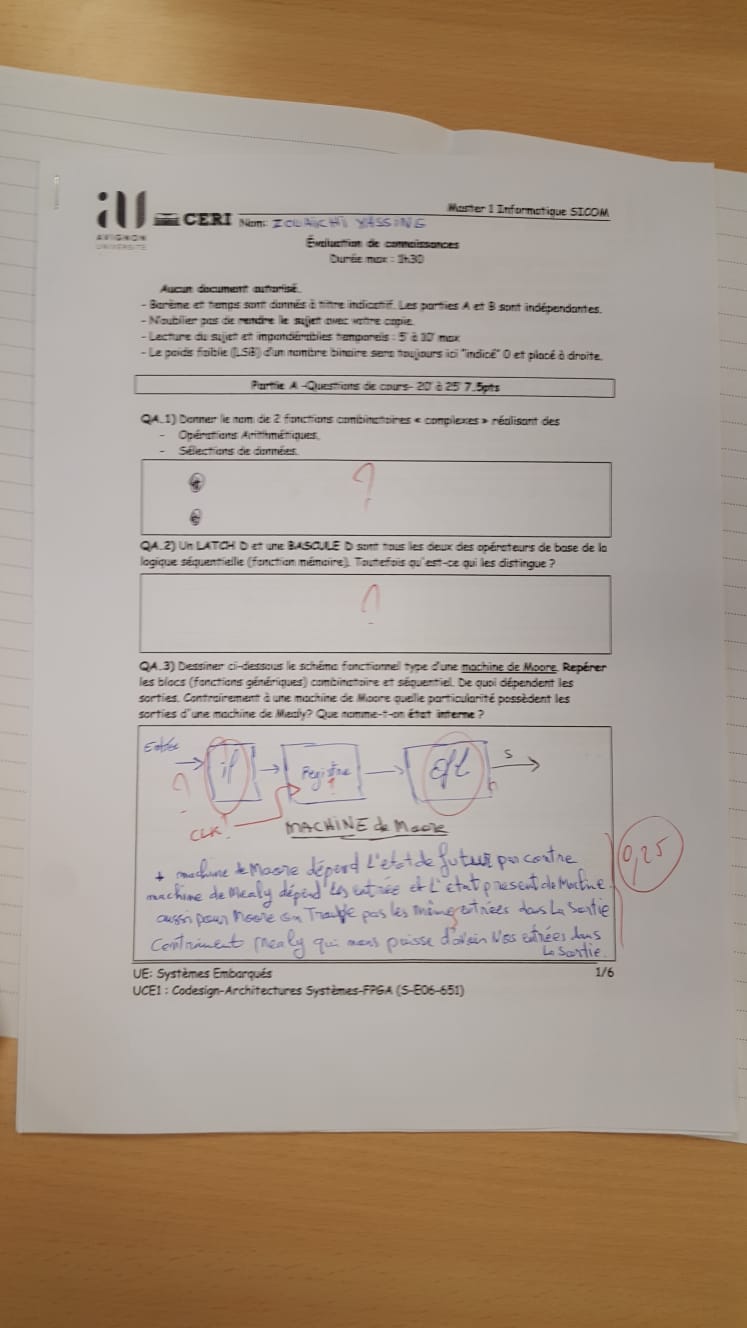 AVIGNON
UNIVERSITÉ
CERI Nom: ZOUAICHI YASSINE
Master 1 Informatique SICOM
Évaluation de connaissances
Durée max : 1h30
Aucun document autorisé.
- Barème et temps sont donnés à titre indicatif. Les parties A et B sont indépendantes.
- N'oublier pas de rendre le sujet avec votre copie.
- Lecture du sujet et impondérables temporels : 5' à 10' max
- Le poids faible (LSB) d'un nombre binaire sera toujours ici "indicé" 0 et placé à droite.
Partie A -Questions de cours- 20' à 25' 7.5pts
QA.1) Donner le nom de 2 fonctions combinatoires « complexes » réalisant des
- Opérations Arithmétiques.
- Sélections de données.
?
QA.2) Un LATCH D et une BASCULE D sont tous les deux des opérateurs de base de la
logique séquentielle (fonction mémoire). Toutefois qu'est-ce qui les distingue ?
?
QA.3) Dessiner ci-dessous le schéma fonctionnel type d'une machine de Moore. Repérer
les blocs (fonctions génériques) combinatoire et séquentiel. De quoi dépendent les
sorties. Contrairement à une machine de Moore quelle particularité possèdent les
sorties d'une machine de Mealy? Que nomme-t-on état interne ?
Entrée
?
Registre
S
CLK!
MACHINE de Moore
0,25
+ machine de Moore dépend L'etat de futur par contre
machine de Mealy dépend les entrée et L'état present de Machine.
aussi pour Moore on pas les même entrées dans La Sortie
Mealy qui nous puisse Nos entrées dans
La Sortie.
UE: Systèmes Embarqués
1/6
UCE1 : Codesign-Architectures Systèmes-FPGA (S-E06-651)